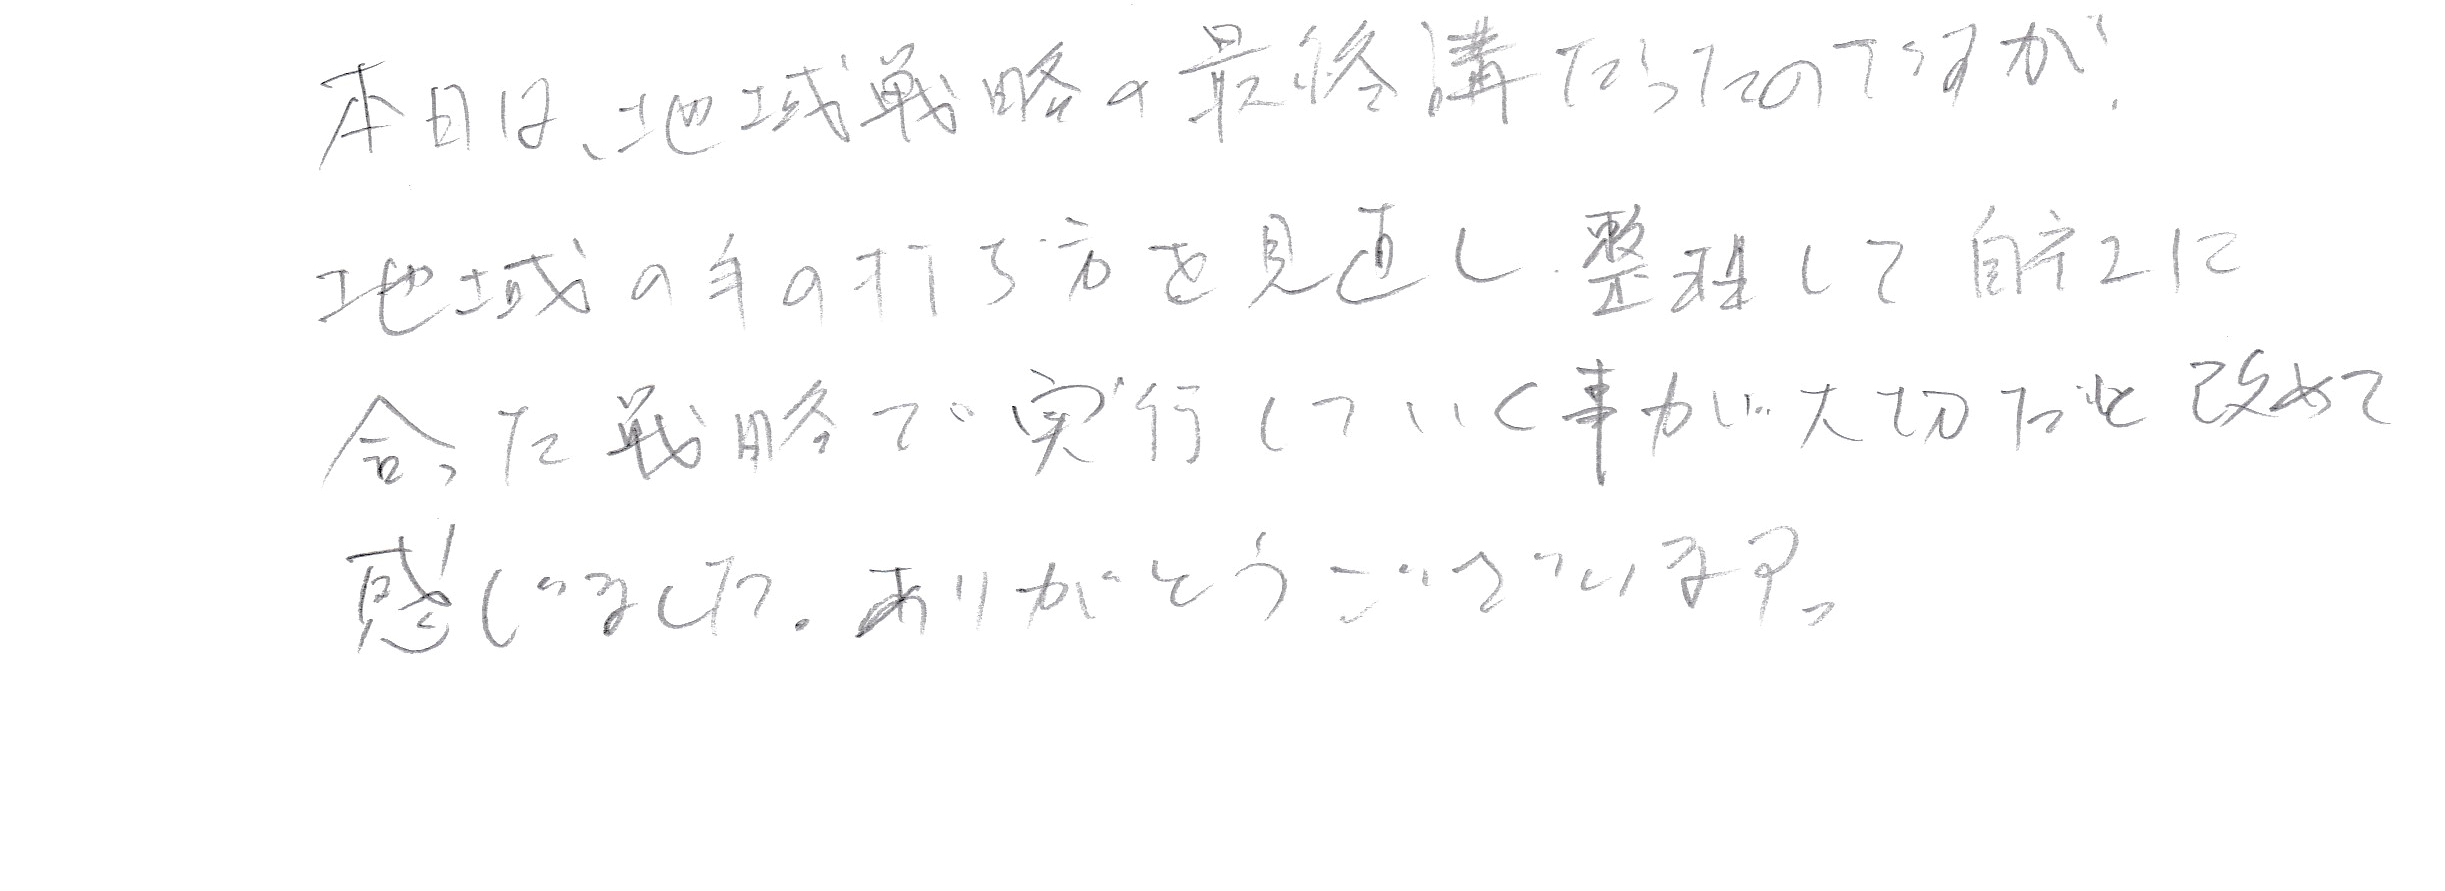 本日は、地域戦略の最終講だったのですが、
地域の手の打ち方を見直し、整理して自社に
合った戦略で実行していく事が大切だと改めて
感じました。ありがとうございます。